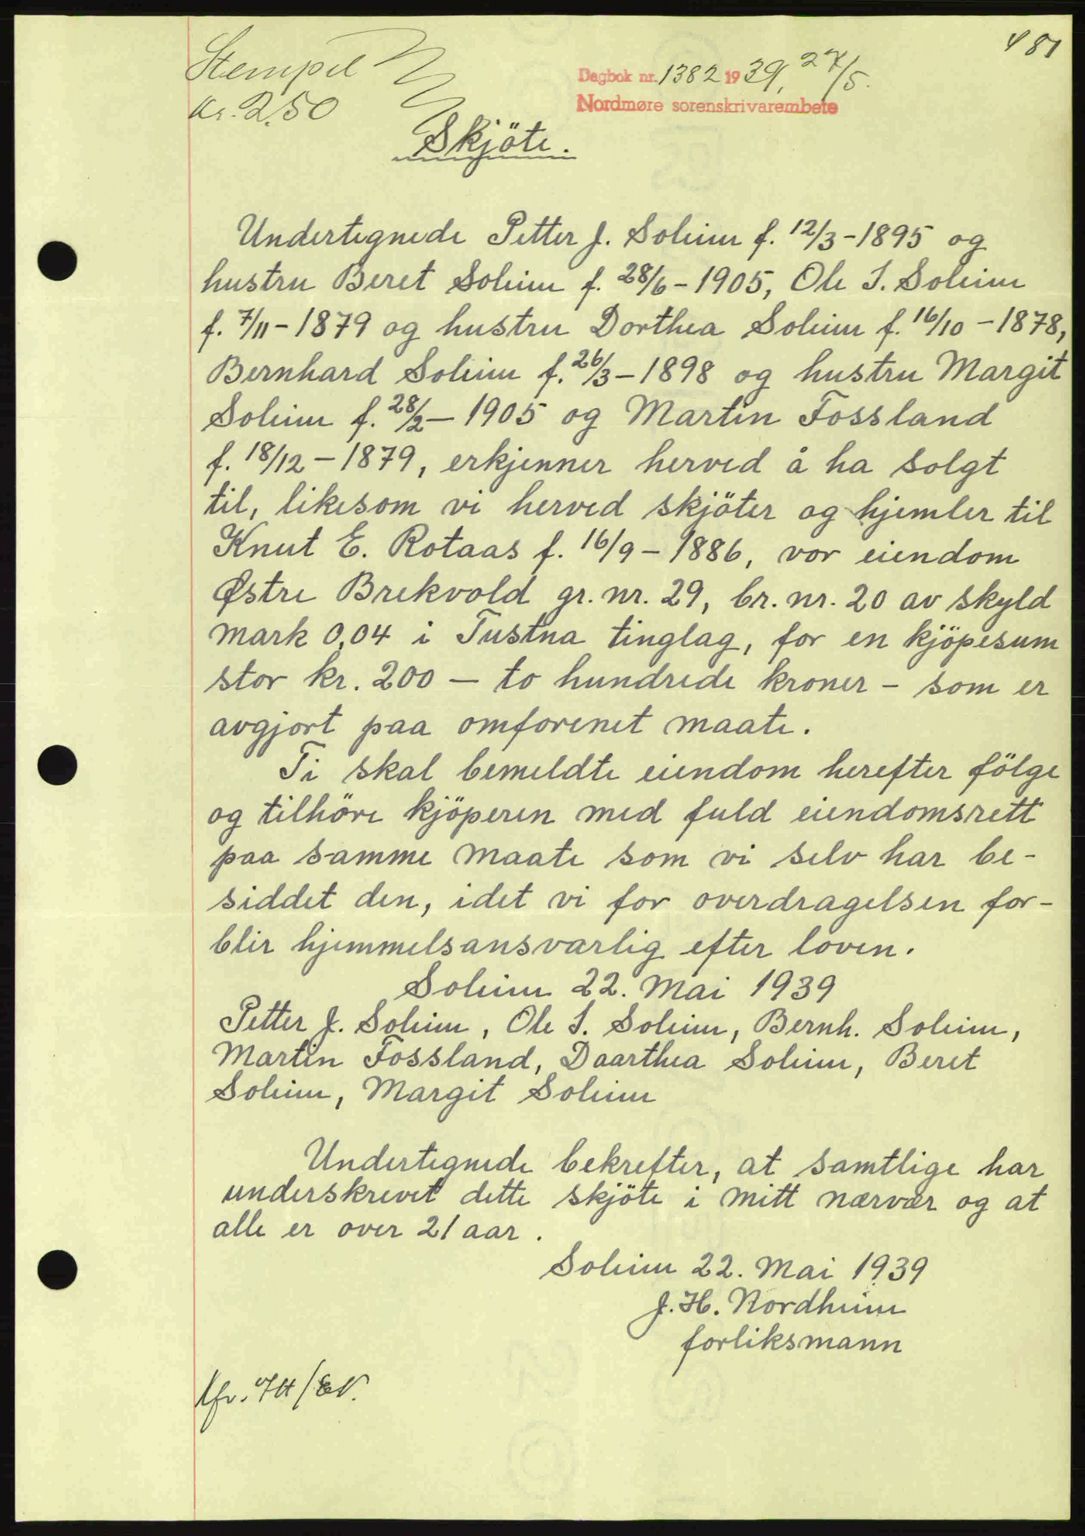 481
Stempel
Kr. 2,50
Dagbok nr. 1382 1939, 27/5.
Nordmøre sorenskrivarembete
Skjöte.
Undertegnede Petter J. Soleim f. 12/3-1895 og
hustru Beret Soleim f. 28/6-1905, Ole I. Soleim
f. 7/11-1879 og hustru Dorthea Soleim f. 16/10-1878,
Bernhard Soleim f. 26/3-1898 og hustru Margit
Soleim f. 28/2-1905 og Martin Fossland
f. 18/12-1879, erkjenner herved å ha solgt
til, likesom vi herved skjöter og hjemler til
Knut E. Rotaas f. 16/9-1886, vor eiendom
Østre Brekvold gr. nr. 29, br. nr. 20 av skyld
mark 0,04 i Tustna tinglag, for en kjöpesum
stor kr. 200 — to hundrede kroner - som er
avgjort paa omforenet maate.
Ti skal bemeldte eiendom herefter fölge
og tilhöre kjöperen med fuld eiendomsrett
paa samme maate som vi selv har be-
siddet den, idet vi for overdragelsen for-
blir hjemmelsansvarlig efter loven.
Soleim 22. Mai 1939
Petter J. Soleim, Ole I. Soleim, Bernh. Soleim,
Martin Fossland, Daarthea Soleim, Beret
Soleim, Margit Soleim
Undertegnede bekrefter, at samtlige har
underskrevet dette skjöte i mitt nærvær og at
alle er over 21 aar.
Soleim 22. Mai 1939
J. H. Nordheim
forliksmann